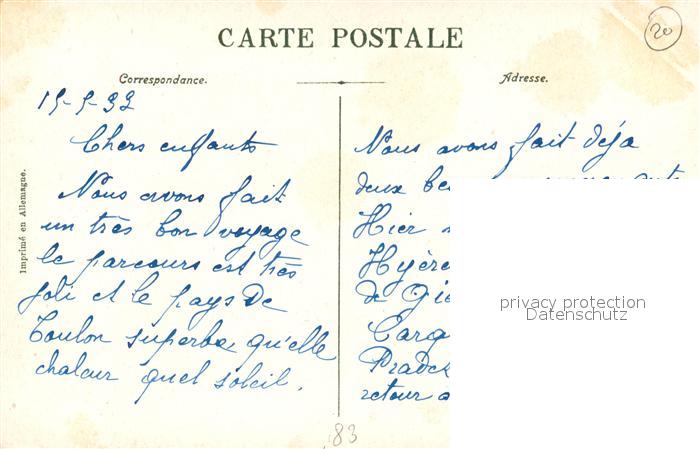 20
CARTE POSTALE
Correspondance.
Adresse.
Imprimé en Allemagne.
Chers enfants
Nous avons fait
un très bon voyage
le parcours est très
joli et le pays de
Toulon superbe qu'elle
chaleur quel soleil.
Nous avons fait déja
deux
Hier
Hyère
de Gie
Carq
Pradet
retour a
privacy protection
Datenschutz
83